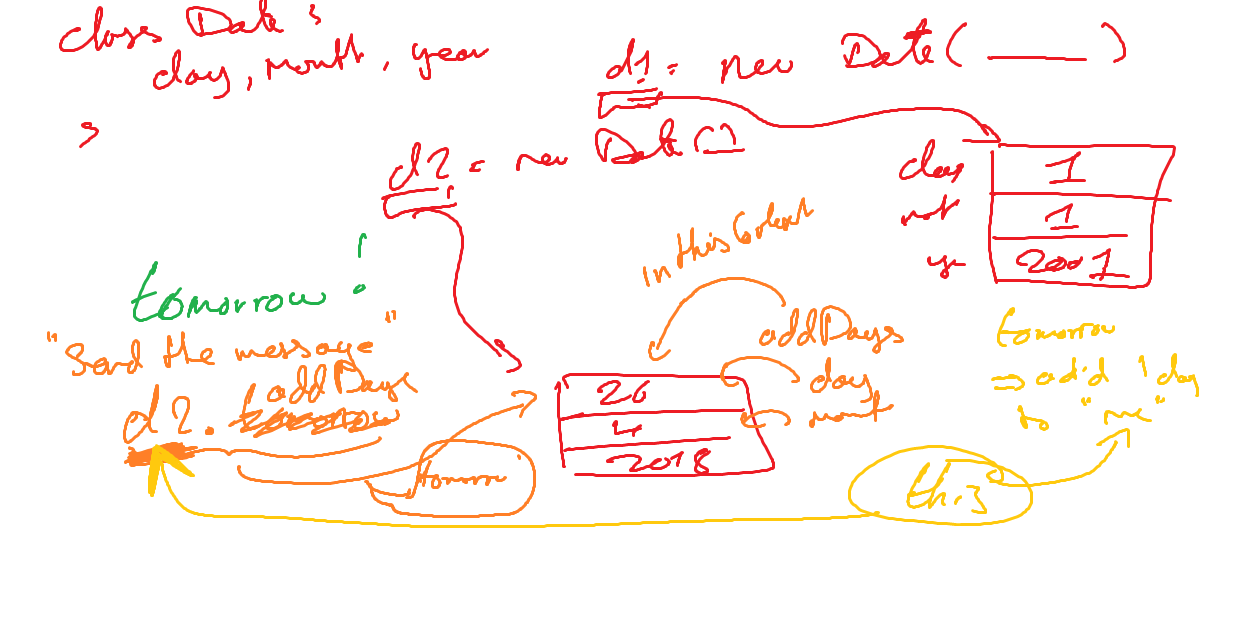 class Date :
day, month, year
d1 = new Date( ______ )
d2 = new Date ( )
day 1
1
2001
in this Context
tomorrow :
"Send the message"
d2. addDays
addDays
day
mont
26
4
2018
tomorrow
tomorrow
⇒ add 1 day
to "me"
this